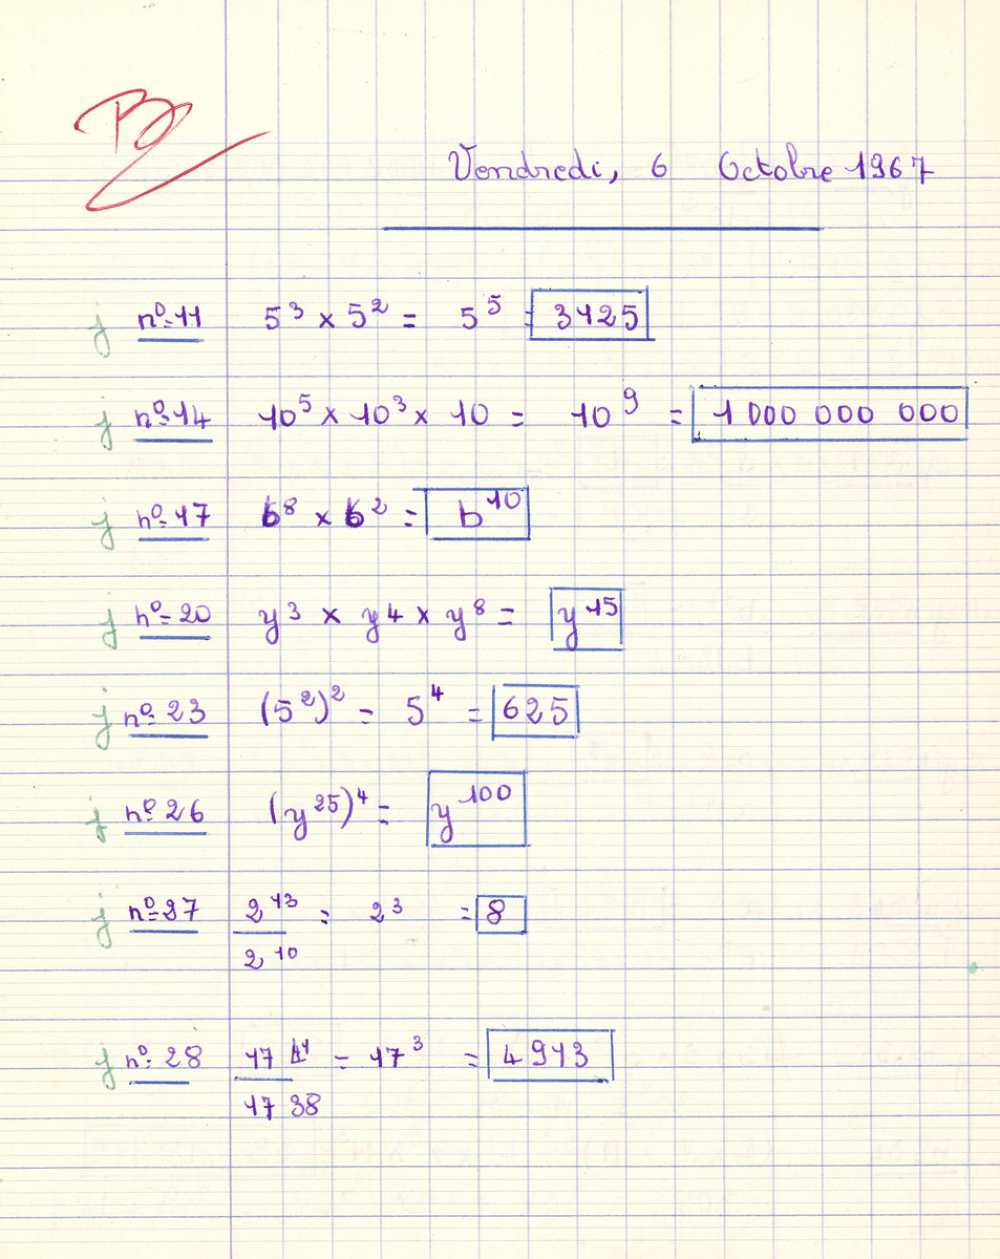 B
Vendredi, 6 Octobre 1967
j nº 11 5³ × 5² = 5⁵ = 3125
j nº 14 10⁵ × 10³ × 10 = 10⁹ = 1 000 000 000
j nº 17 b⁸ × b² = b¹⁰
j nº 20 y³ × y⁴ × y⁸ = y¹⁵
j nº 23 (5²)² = 5⁴ = 625
j nº 26 (y²⁵)⁴ = y¹⁰⁰
j nº 27 2¹³ = 2³ = 8
2¹⁰
j nº 28 17⁴¹ = 17³ = 4913
17³⁸